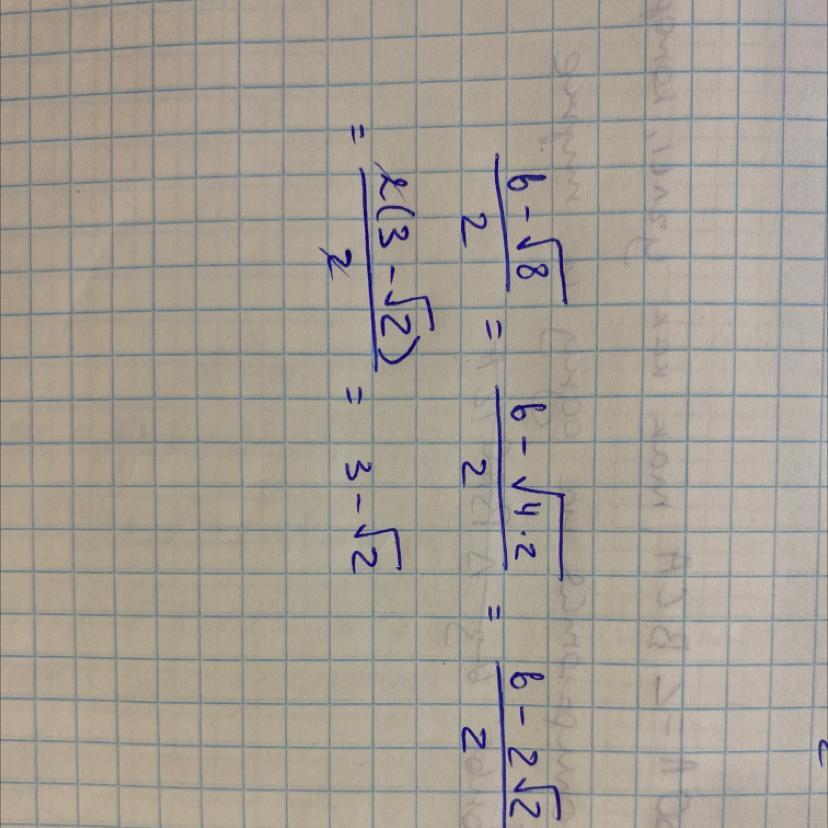 (6 - √8)/2 = (6 - √(4·2))/2 = (6 - 2√2)/2
= 2(3 - √2)/2 = 3 - √2